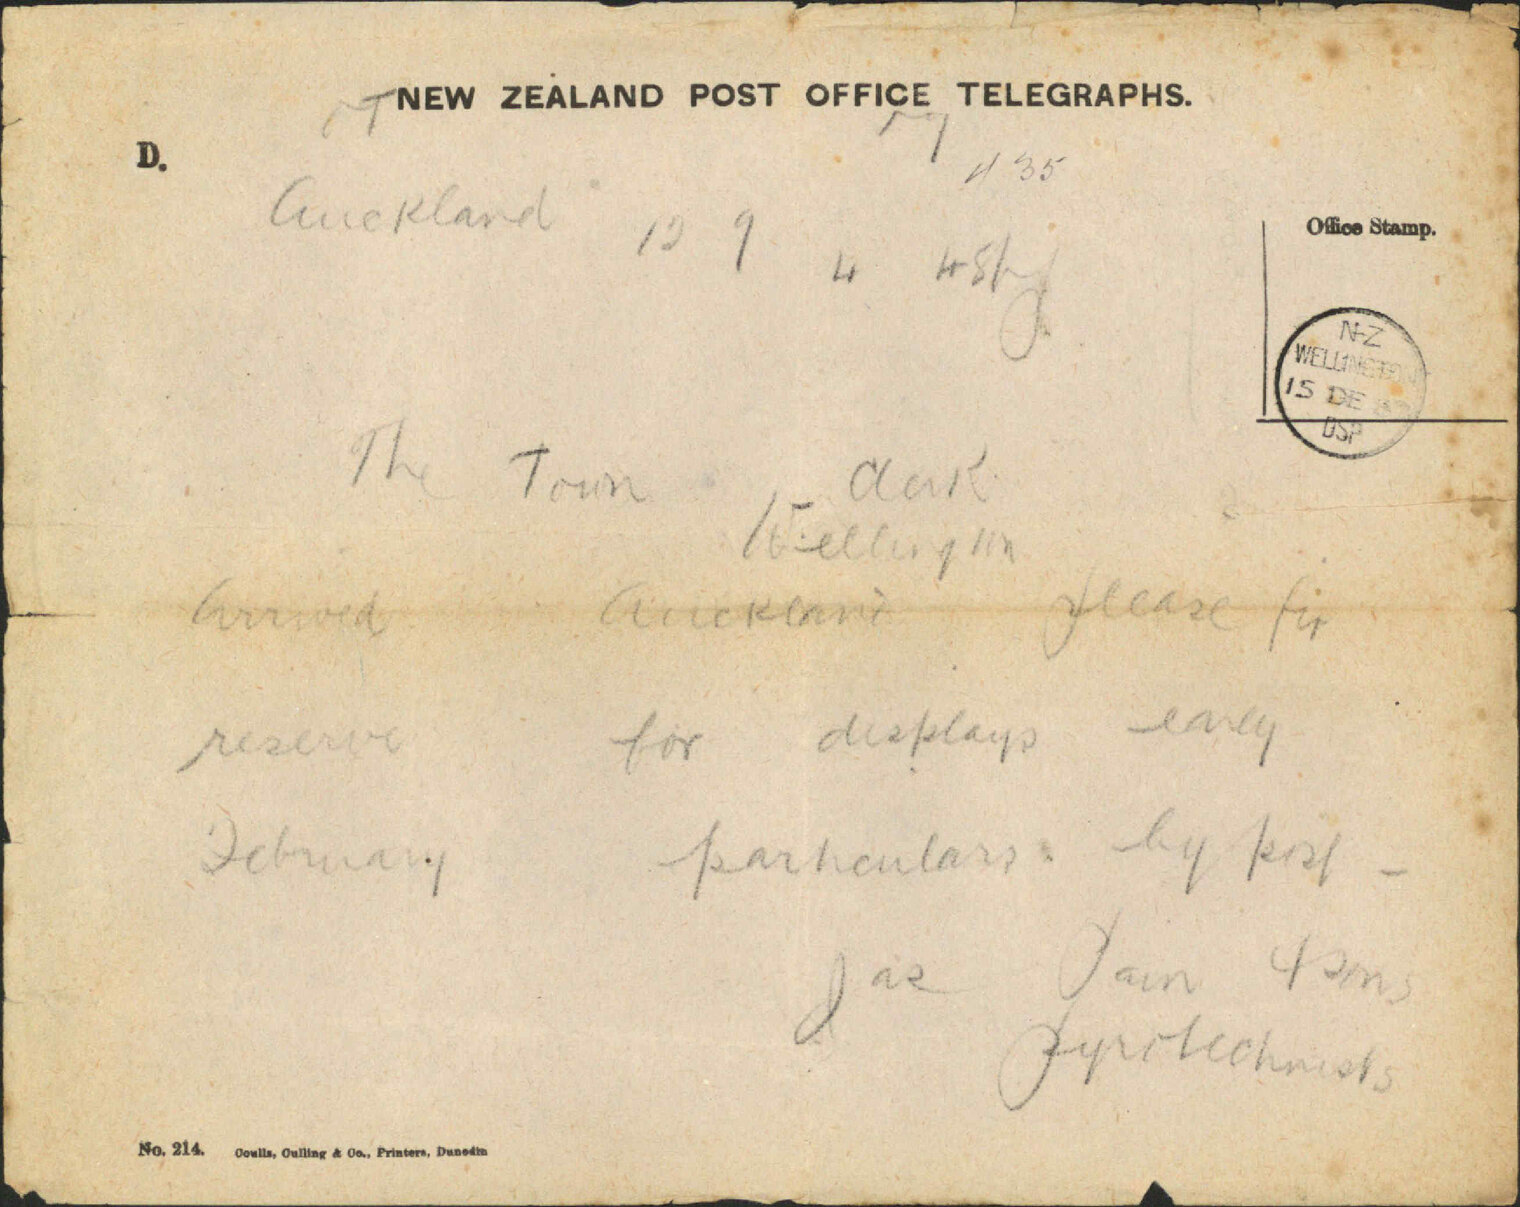 NEW ZEALAND POST OFFICE TELEGRAPHS.
D.
435
Auckland 12 9 4 45
Office Stamp.
N-Z
WELLINGTON
15 DE
DSP
The Town Clerk
Wellington
Arrived Auckland please fix
reserve for displays early
February particulars by post -
Jas Pain & Sons
Pyrotechnists
No. 214. Coulls, Culling & Co., Printers, Dunedin